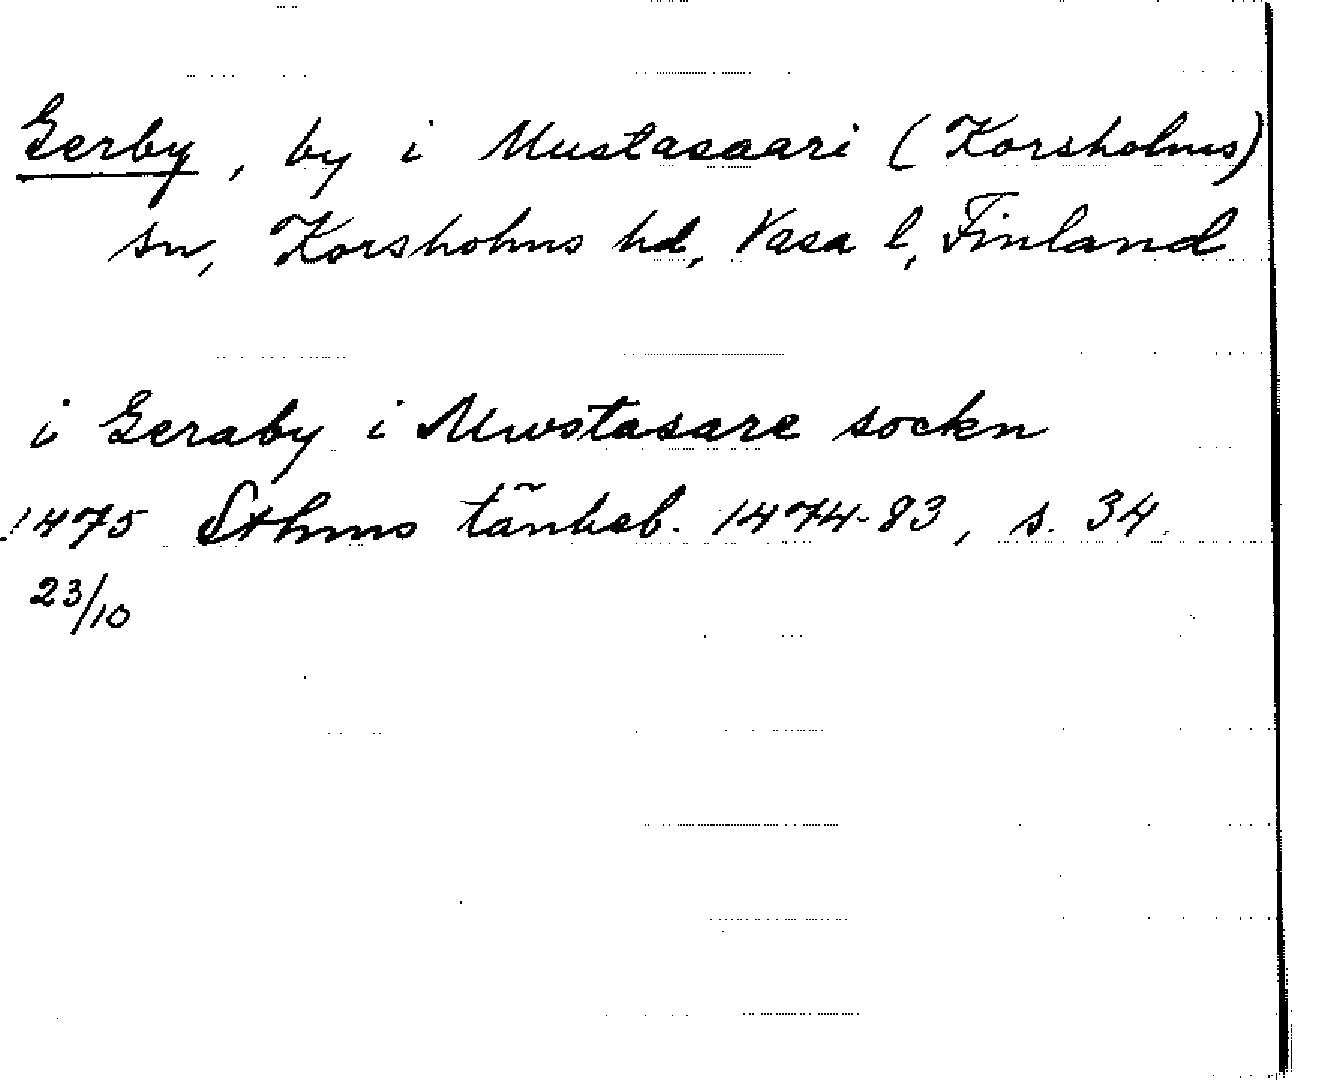 Gerby, by i Mustasaari (Korsholms)
sn, Korsholms hd, Vasa l, Finland
i Geraby i Mwstasare sockn
1475 Sthms tänkeb. 1474-83, s. 34.
23/10